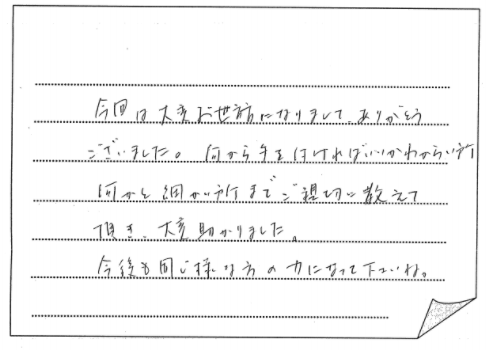 今回は大変お世話になりまして、ありがとう
ございました。何から手を付ければいいかわからい所
何かと細かい所までご親切に教えて
頂き、大変助かりました。
今後も同じ様な方の力になって下さいね。